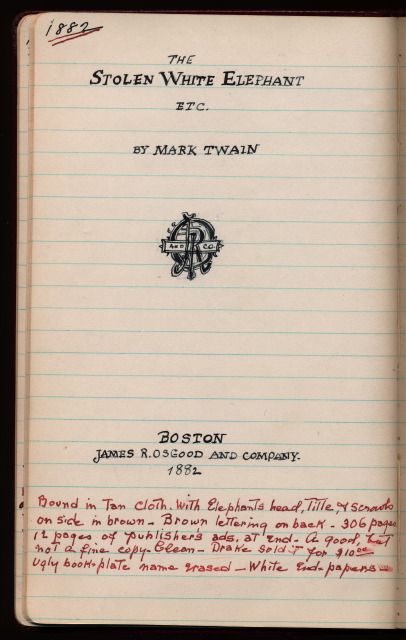 1882
THE
STOLEN WHITE ELEPHANT
ETC.
BY MARK TWAIN
AND CO.
BOSTON
JAMES R. OSGOOD AND COMPANY.
1882
Bound in Tan Cloth. With Elephants head, Title & scrawls
on side in brown - Brown lettering on back - 306 pages
12 pages of publisher's ads, at end - A good, but
not a fine copy - Clean - Drake sold it for $10.00
Ugly book-plate name erased - White End-papers -